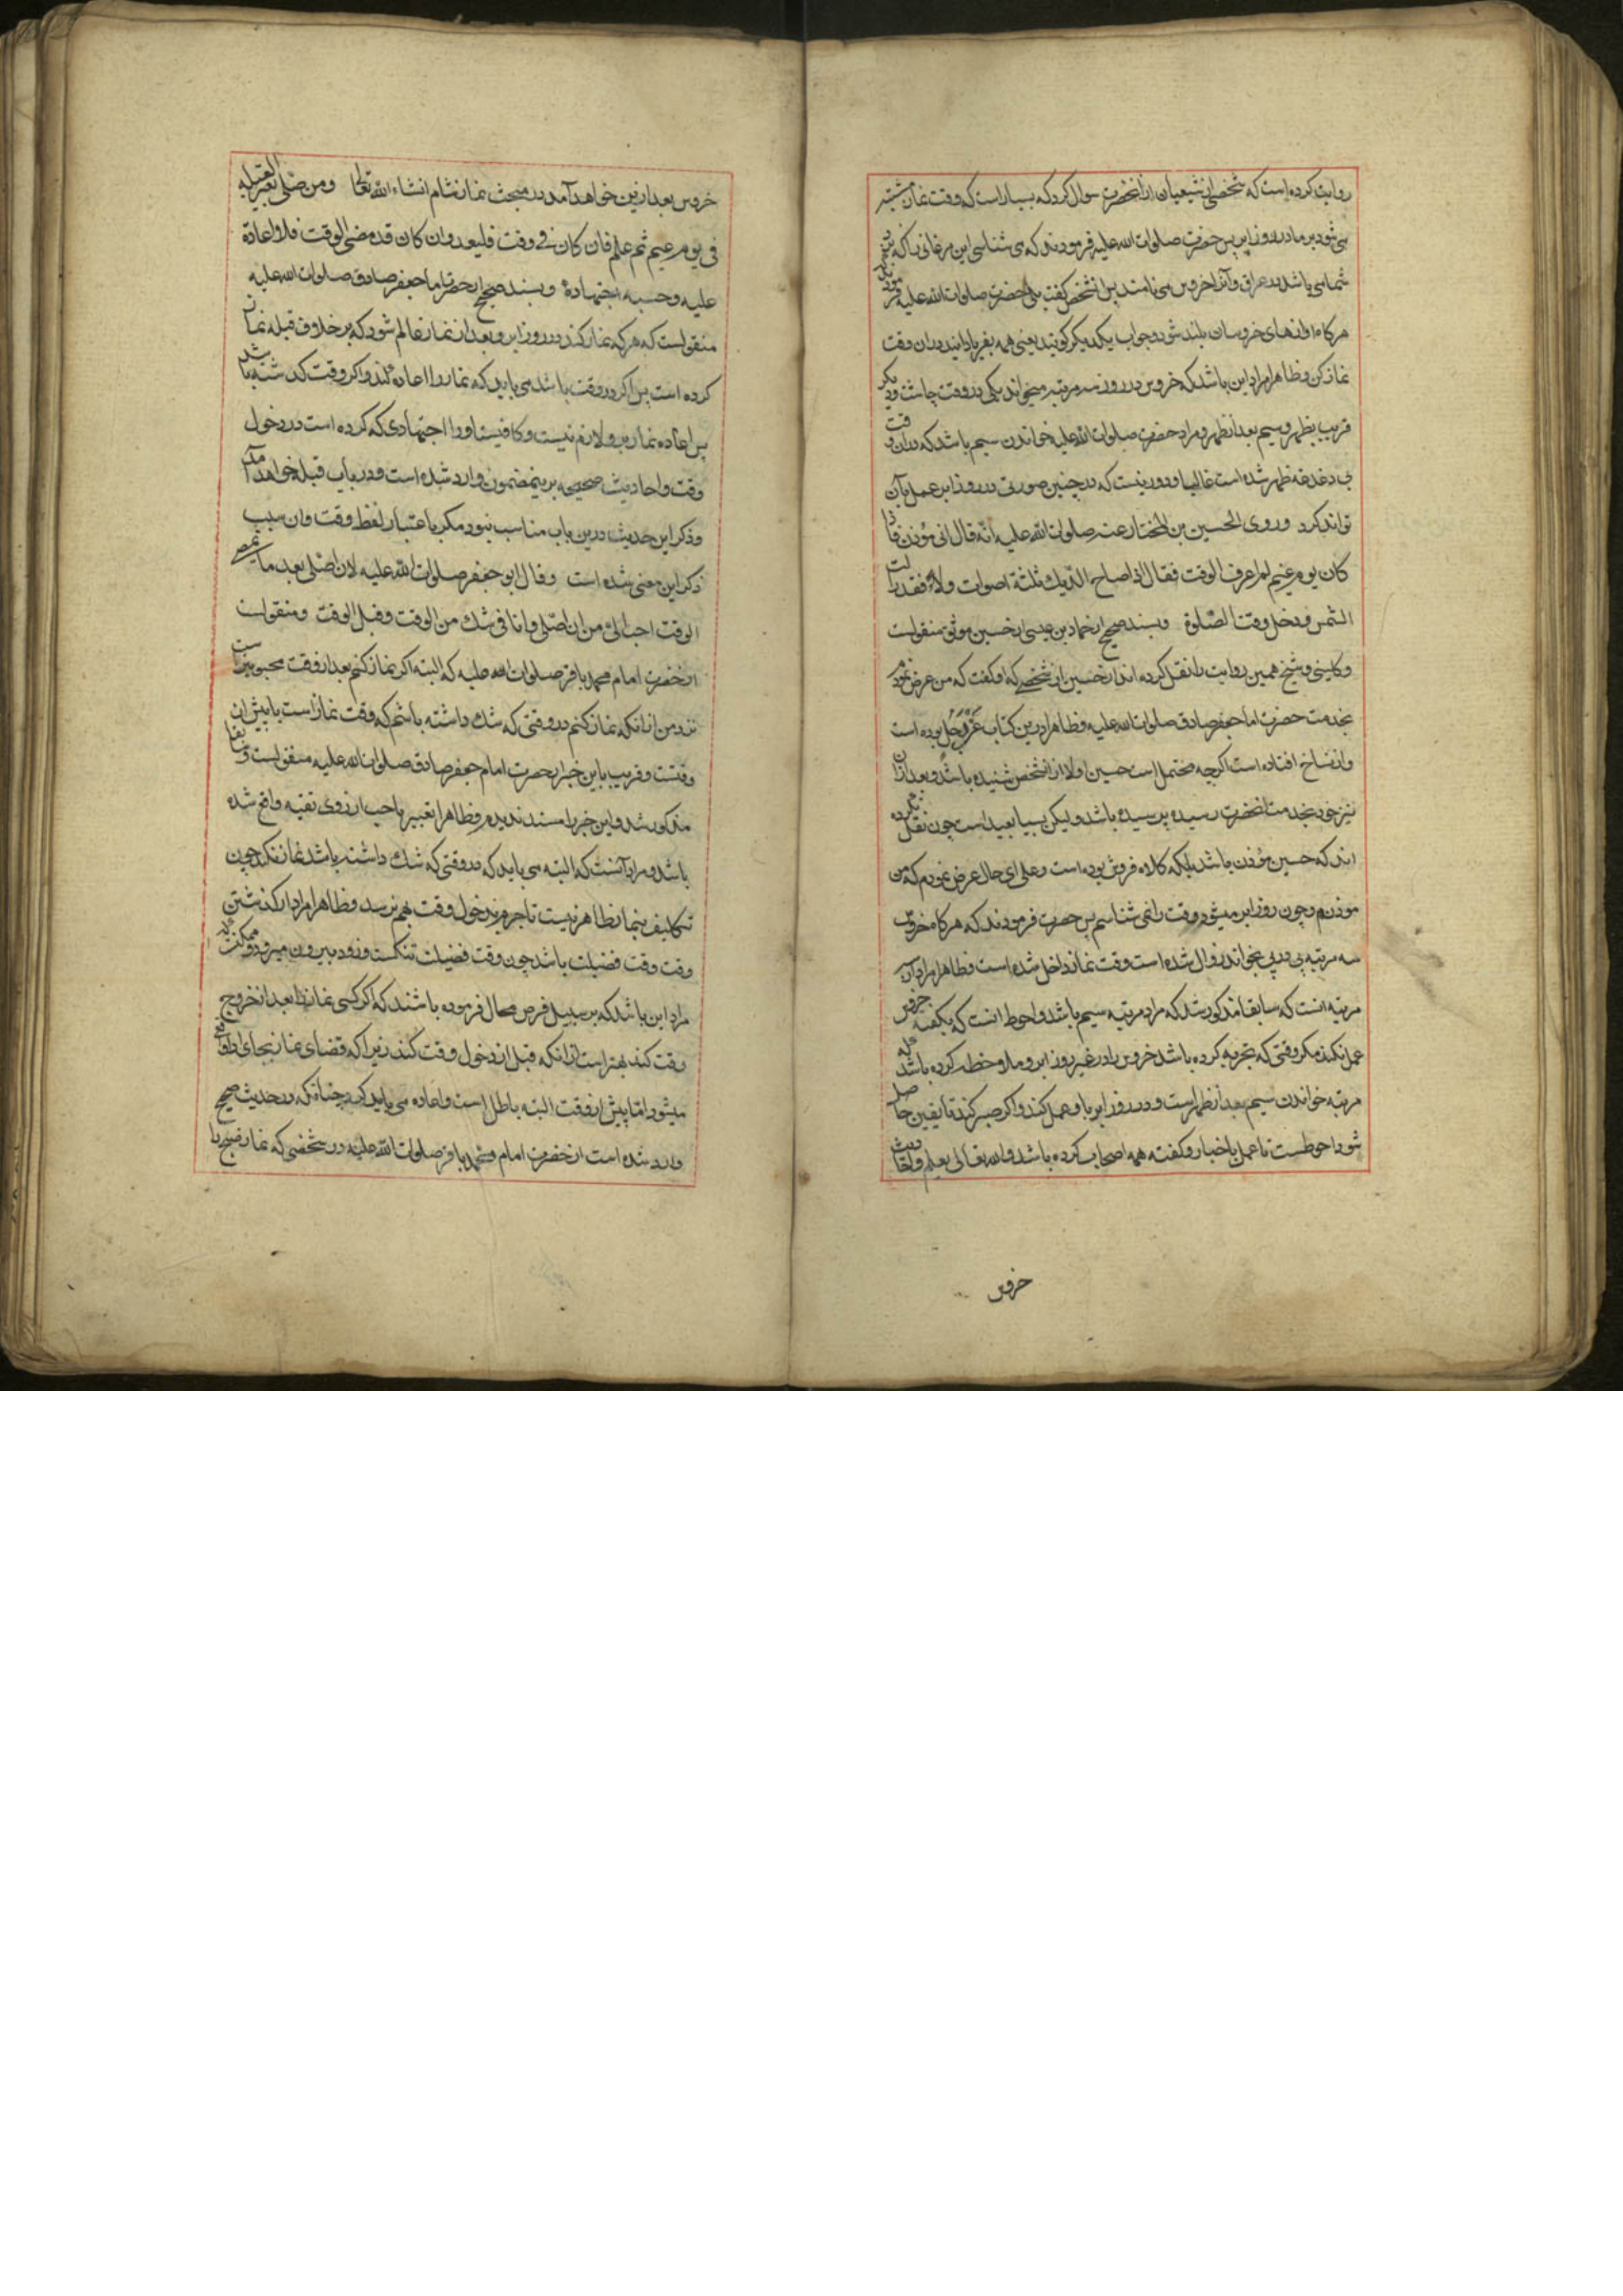 روایت کرده است که شخصی از شیعیان از آنحضرت سوال کرد که بسیار است که وقت نماز مشتبه
می شود بر ما در روز ابر پس حضرت صلوات الله علیه فرمودند که می شناسی این مرغانی را که نزد
شما می باشد در عراق و آنرا خروس می نامند پس آنشخص گفت بلی حضرت صلوات الله علیه فرمود که
هرگاه اوازهای خروسان بلند شود و جواب یکدیگر گویند یعنی همه بفریاد ایند در ان وقت
نماز کن و ظاهرا مراد این باشد که خروس در روز سه مرتبه میخواند یکی در وقت چاشت و دیگر
قریب بظهر و سیم بعد از ظهر و مراد حضرت صلوات الله علیه خواندن سیم باشد که در ان وقت
بی دغدغه ظهر شده است غالبا و دور نیست که در چنین صورتی در روز ابر عمل بآن
تواند کرد وروی الحسین بن المختار عنه صلوات الله علیه انه قال انی مؤذن فاذا
کان یوم غیم لم اعرف الوقت فقال اذا صاح الدیك ثلثة اصوات ولاء فقد زالت
الشمس و دخل وقت الصلوة و بسند صحیح از حماد بن عیسی از حسین موثق منقولست
و کلینی و شیخ همین روایت را نقل کرده اند از حسین از شخصی که او گفت که من عرض نمودم
بخدمت حضرت امام جعفر صادق صلوات الله علیه و ظاهرا درین کتاب عن رجل بوده است
و از نساخ افتاده است اگرچه محتمل است حسین اولا از آنشخص شنیده باشد و بعد از آن
نیز خود بخدمت آنحضرت رسیده پرسیده باشد و لیکن بسیار بعید است چون نقل نکرده
اند که حسین مؤذن باشد بلکه کلاه فروش بوده است و علی ای حال عرض نمودم که من
موذنم و چون روز ابر میشود وقت را نمی شناسم پس حضرت فرمودند که هرگاه خروس
سه مرتبه پی در پی بخواند زوال شده است و وقت نماز داخل شده است و ظاهرا مراد آن
مرتبه است که سابقا مذکور شد که مراد مرتبه سیم باشد و احوط انست که بگفته خروس
عمل نکند مگر وقتی که تجربه کرده باشد خروس را در غیر روز ابر و ملاحظه کرده باشد که
مرتبه خواندن سیم بعد از ظهر است و در روز ابر باو عمل کند و اگر صبر کند تا یقین حاصل
شود احوطست تا عمل باخبار و گفته همه اصحاب کرده باشد و الله تعالی یعلم و احادیث
خروس
خروس بعد ازین خواهد آمد در مبحث نماز شام انشاء الله تعالی ومن صلی لغیر القبلة
فی یوم غیم ثم علم فان کان فی وقت فلیعد وان کان قد مضی الوقت فلا اعادة
علیه وحسبه اجتهاده و بسند صحیح از حضرت امام جعفر صادق صلوات الله علیه
منقولست که هر که نماز کند در روز ابر و بعد از نماز عالم شود که بر خلاف قبله نماز
کرده است پس اگر در وقت باشد می باید که نماز را اعاده کند و اگر وقت گذشته باشد
پس اعاده نماز بر او لازم نیست و کافیست او را اجتهادی که کرده است در دخول
وقت و احادیث صحیحه برینمضمون وارد شده است و در باب قبله خواهد آمد
و ذکر این حدیث درین باب مناسب نبود مگر باعتبار لفظ وقت و ان سبب
ذکر این معنی شده است وقال ابو جعفر صلوات الله علیه لان اصلی بعد ما یمضی
الوقت احب الیّ من ان اصلی وانا فی شك من الوقت وقبل الوقت و منقولست
از حضرت امام محمد باقر صلوات الله علیه که البته اگر نماز کنم بعد از وقت محبوبتر است
نزد من از آنکه نماز کنم در وقتی که شك داشته باشم که وقت نماز است یا پیش از
وقتست و قریب باین خبر از حضرت امام جعفر صادق صلوات الله علیه منقولست و سابقا
مذکور شد و این خبر را مسند ندیدم و ظاهرا تعبیر باحب از روی تقیه واقع شده
باشد و مراد آنست که البته می باید که در وقتی که شك داشته باشد نماز نکند چون
تکلیف بنماز ظاهر نیست تا جزم بدخول وقت بهم نرسد و ظاهرا مراد از گذشتن
وقت وقت فضیلت باشد چون وقت فضیلت تنگست و زود بیرون میرود و ممکنست که
مراد این باشد که بر سبیل فرض محال فرموده باشند که اگر کسی نماز را بعد از خروج
وقت کند بهتر است از آنکه قبل از دخول وقت کند زیرا که قضای نماز بجای ادا واقع
میشود اما پیش از وقت البته باطل است و اعاده می باید کرد چنانکه در حدیث صحیح
وارد شده است از حضرت امام محمد باقر صلوات الله علیه در شخصی که نماز صبح را